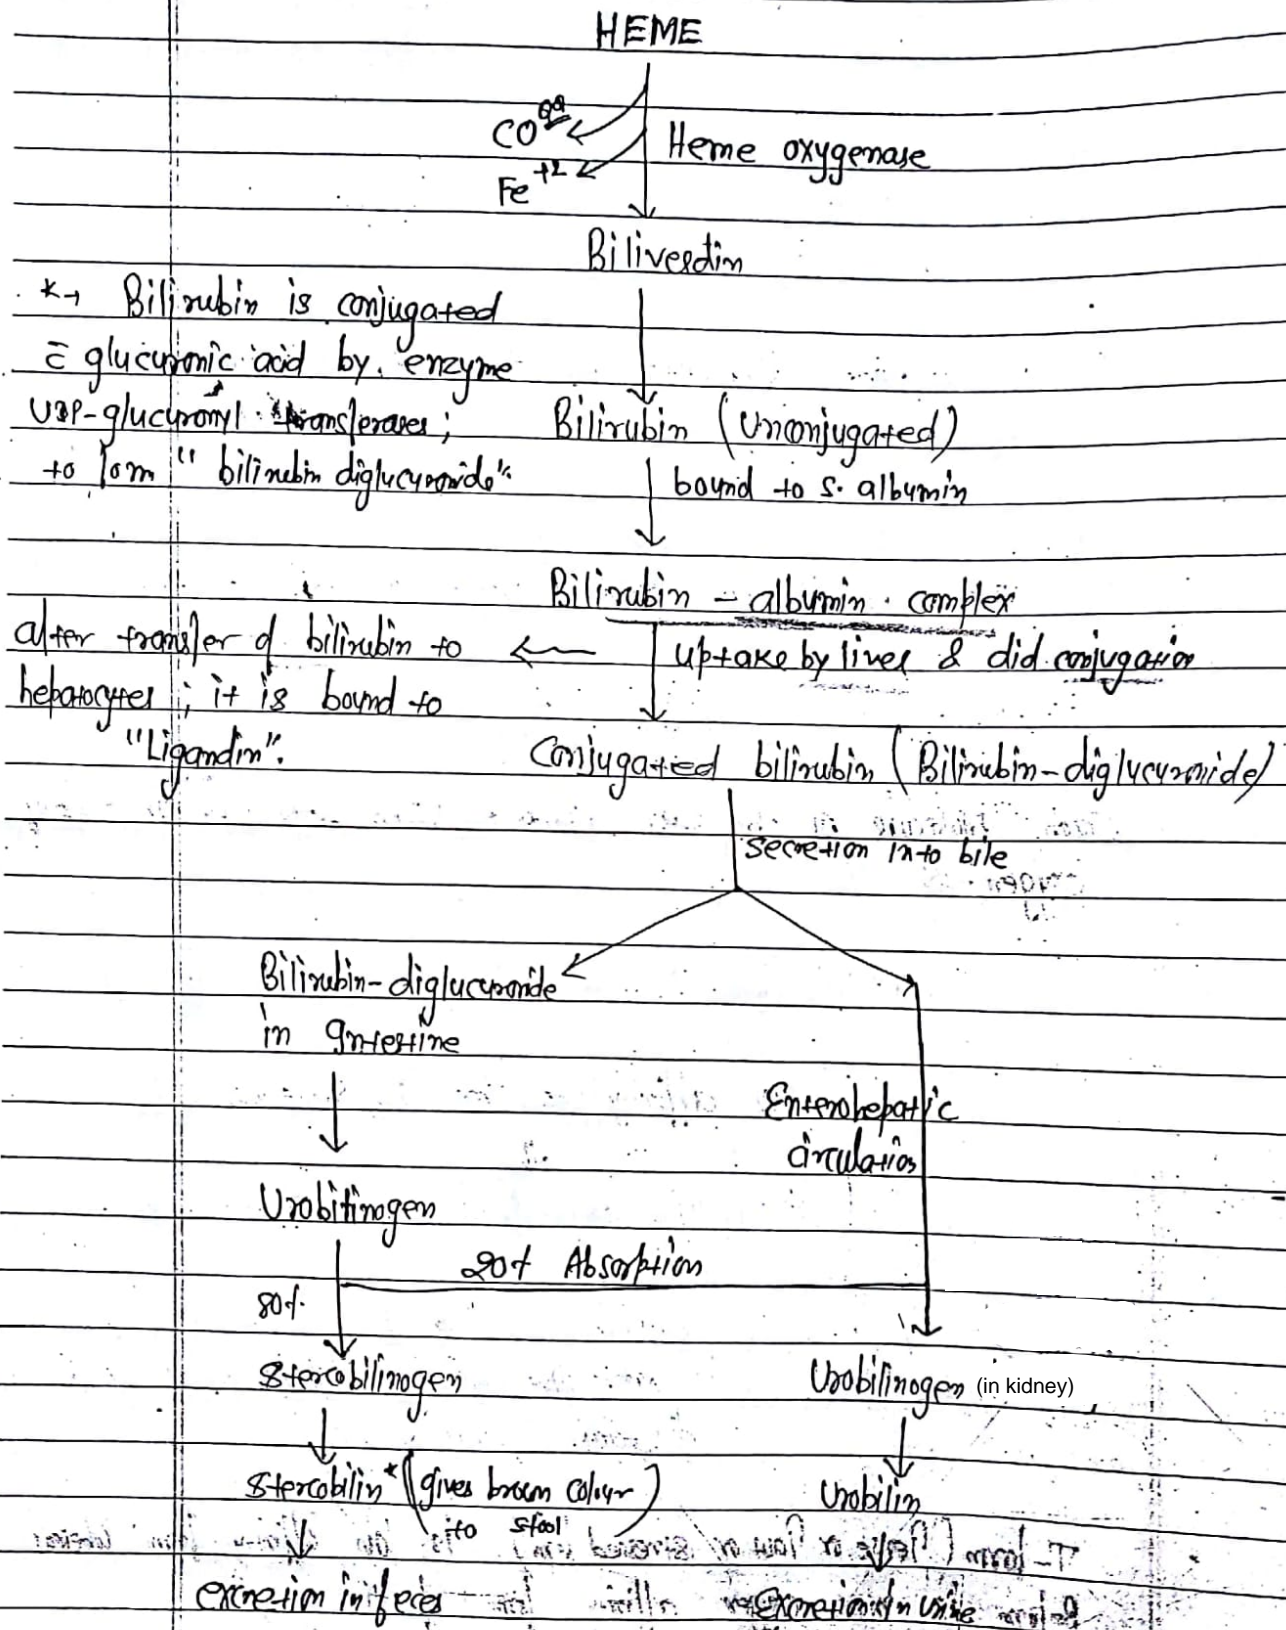 HEME
CO
Fe+2
Heme oxygenase
Biliverdin
*→ Bilirubin is conjugated
c̄ glucuronic acid by enzyme
UDP-glucuronyl transferases;
to form "bilirubin diglucuronide".
Bilirubin (Unconjugated)
bound to S. albumin
Bilirubin - albumin complex
uptake by liver & did conjugation
after transfer of bilirubin to
hepatocytes; it is bound to
"Ligandin".
Conjugated bilirubin (Bilirubin-diglucuronide)
secretion into bile
Bilirubin-diglucuronide
in Intestine
Enterohepatic
circulation
Urobilinogen
20% Absorption
80%
Stercobilinogen
Urobilinogen (in kidney)
Stercobilin* (gives brown colour
to stool)
Urobilin
excretion in feces
Excretion in urine